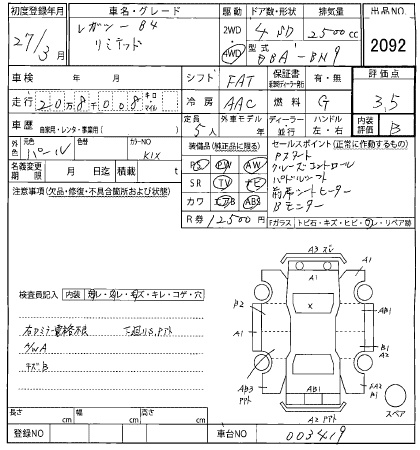 初度登録年月 車名・グレード 駆動 ドア数・形状 排気量 出品NO
27/3月 レガシー B4 リミテッド 2WD・4WD 4 SD 2500cc 2092
型式 DBA-BN9
車検 年 月 シフト FAT 保証書 有・無 評価点
走行 20万8千008 キロ・マイル 冷房 AAC 燃料 G 3,5
車歴 自家用・レンタ・事業用( ) 定員 5人 外車モデル 年 ディーラー・並行 ハンドル 左・右 内装 B
外色 元色 パール 色替 カラーNO K1X
装備品(純正品に限る) セールスポイント(正常に作動するもの)
名義変更期限 月 日迄 積載 t
PS PW AW
SR TV ナビ
カワ エアB ABS
R券 12500円
Pスタート
クルーズコントロール
パドルシフト
前席シートヒーター
Bモニター
注意事項(欠品・修復・不具合箇所および状態)
Fガラス トビ石・キズ・ヒビ・ワレ・リペア跡
検査員記入 内装 ヨゴレ・スレ・キズ・キレ・コゲ・穴
A/W A
キズ B
A3 スレ
A1
A1
X
B2
A1
AB1
B1
A1
AB3
AB1
EA2
B1
A2
スペア
長さ cm 幅 cm 高さ cm
登録NO 車台NO 003419